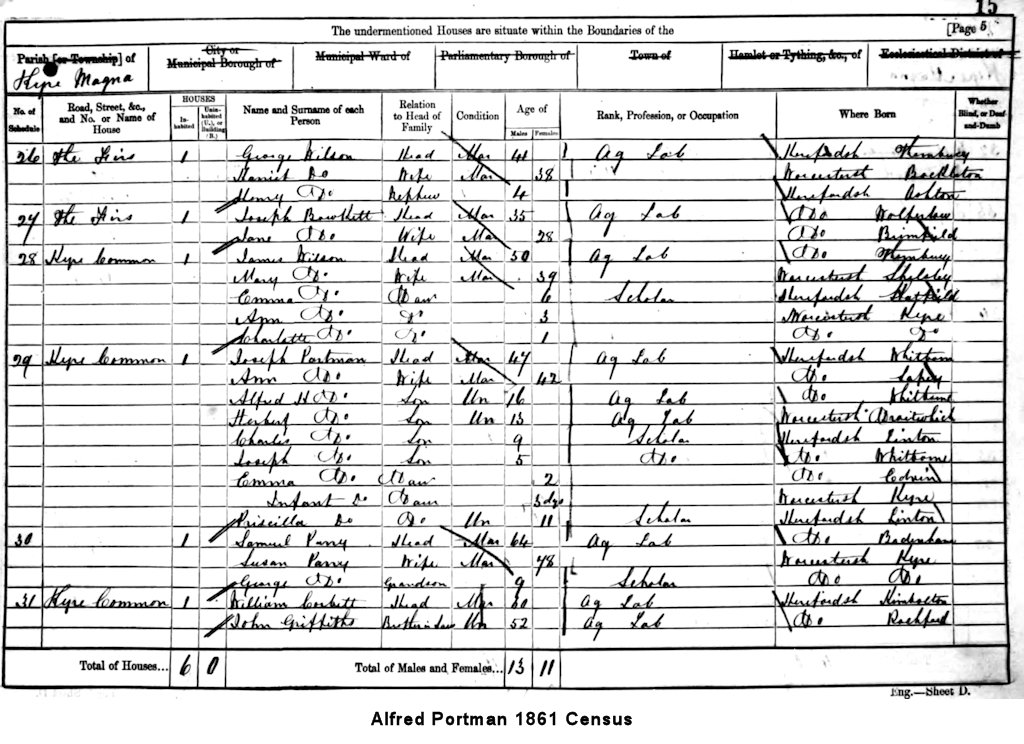 15
The undermentioned Houses are situate within the Boundaries of the [Page 5
Parish [or Township] of City or Municipal Borough of Municipal Ward of Parliamentary Borough of Town of Hamlet or Tything, &c., of Ecclesiastical District of
Kyre Magna
No. of Schedule Road, Street, &c., and No. or Name of House HOUSES Inhabited Uninhabited (U.), or Building (B.) Name and Surname of each Person Relation to Head of Family Condition Age of Males Females Rank, Profession, or Occupation Where Born Whether Blind, or Deaf-and-Dumb
26 The Firs 1 George Wilson Head Mar 41 Ag Lab Herefordsh
Harriet Do Wife Mar 38 Worcestersh Bockleton
Henry Do Nephew 4 Herefordsh Ashton
27 The Firs 1 Joseph Bowkett Head Mar 35 Ag Lab Do Wolferlow
Jane Do Wife Mar 28 Do Brimfield
28 Kyre Common 1 James Wilson Head Mar 50 Ag Lab Do
Mary Do Wife Mar 39 Worcestersh Shelsley
Emma Do Daur 6 Scholar Herefordsh Hatfield
Ann Do Do 3 Worcestersh Kyre
Charlotte Do Do 1 Do Do
29 Kyre Common 1 Joseph Portman Head Mar 47 Ag Lab Herefordsh Whitborn
Ann Do Wife Mar 42 Do Sapey
Alfred H Do Son Un 16 Ag Lab Do Whitborne
Herbert Do Son Un 13 Ag Lab Worcestersh Droitwhich
Charles Do Son 9 Scholar Herefordsh Linton
Joseph Do Son 5 Do Do Whitborne
Emma Do Daur 2 Do Edvin
Infant Do Daur 3 dys Worcestersh Kyre
Priscilla Do Do Un 11 Scholar Herefordsh Linton
30 1 Samuel Parry Head Mar 64 Ag Lab Do Bodenham
Susan Parry Wife Mar 48 Worcestersh Kyre
George Do Grandson 9 Scholar Do Do
31 Kyre Common 1 William Corbett Head Mar 60 Ag Lab Herefordsh Kimbolton
John Griffiths Brother in Law Un 52 Ag Lab Do Rochford
Total of Houses... 6 0 Total of Males and Females... 13 11
Eng.—Sheet D.
Alfred Portman 1861 Census